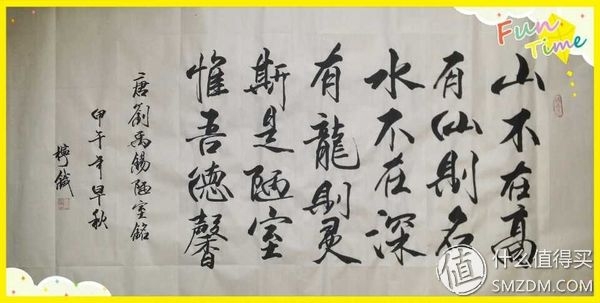 Fun
Time
山不在高
有仙則名
水不在深
有龍則灵
斯是陋室
惟吾德馨
唐劉禹錫陋室銘
甲午年早秋
值 什么值得买
SMZDM.COM